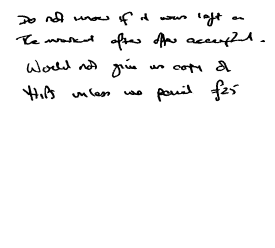 Do not know if it was left on
The market after offer accepted.
Would not give us copy of
HIPs unless we paid £25